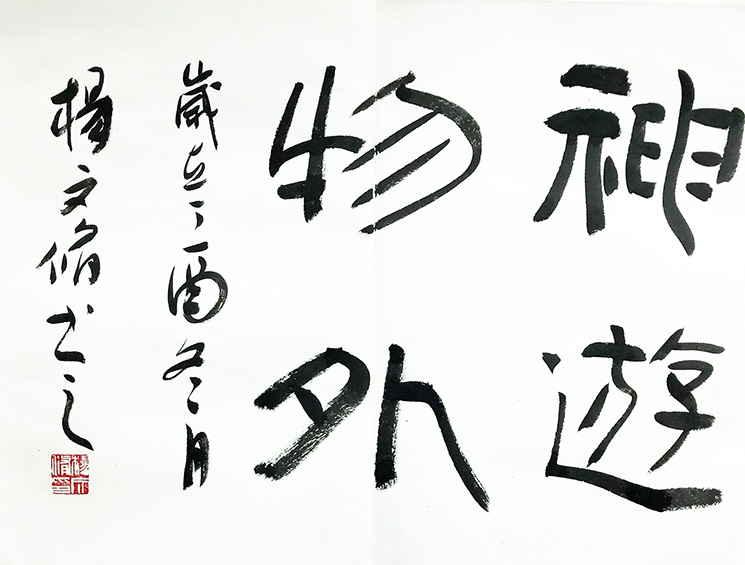 神遊
物外
歲在丁酉冬月
楊文脩书之